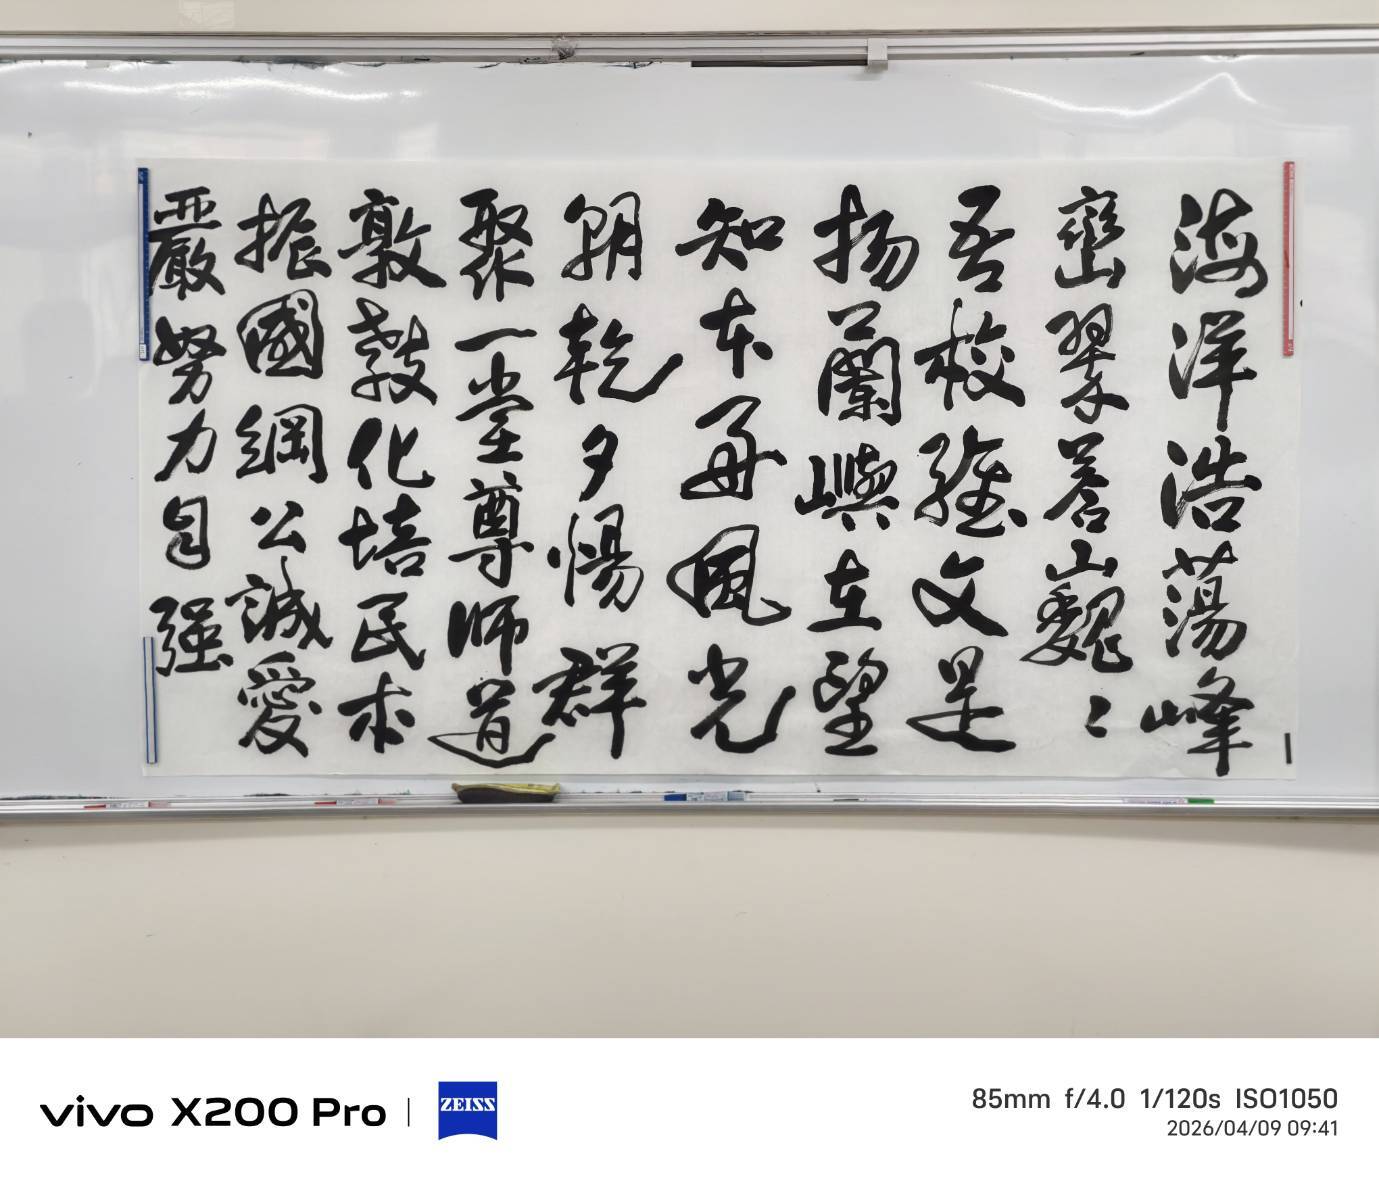 海洋浩蕩峰
巒翠蒼巍〻
吾校文是
揚蘭嶼在望
知本風光
朝乾夕惕群
聚一堂尊師道
敦教化培民本
振國綱公誠愛
嚴努力自强
vivo X200 Pro | ZEISS
85mm f/4.0 1/120s ISO1050
2026/04/09 09:41